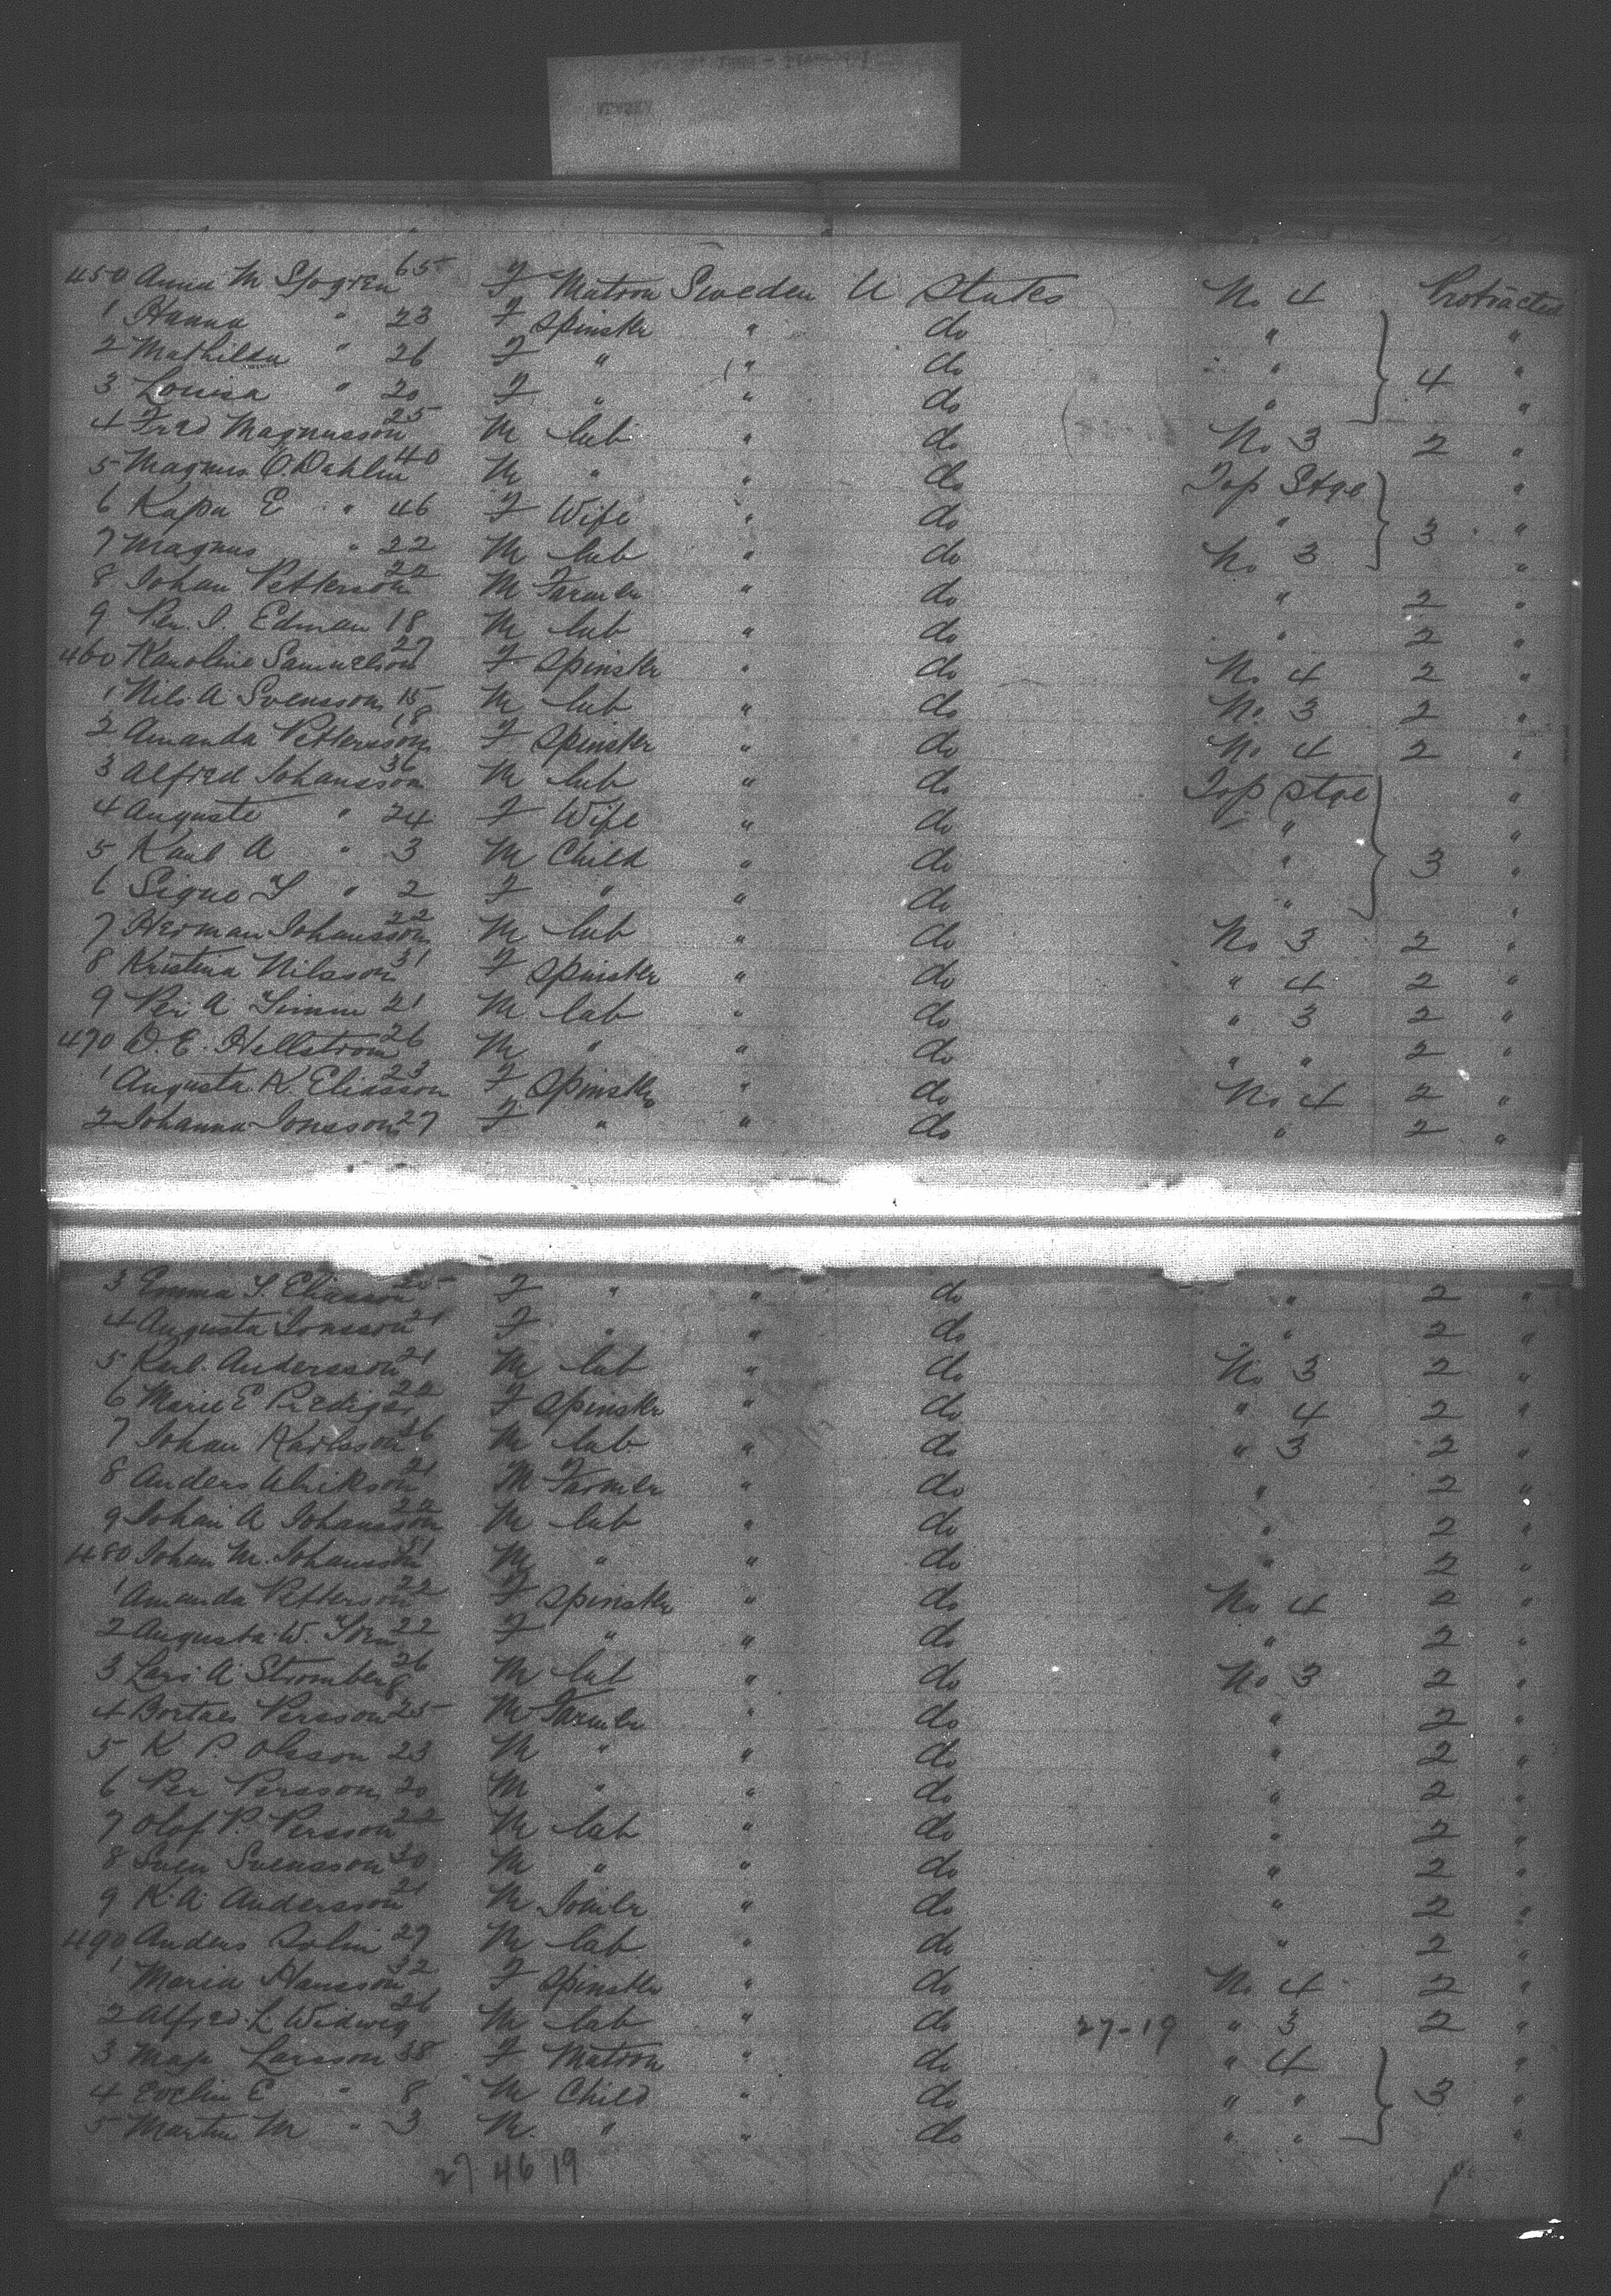 450 Anna M Sjogren 65 F Matron Sweden U States No 4 Protracted
1 Hanna " 23 F Spinster " do " "
2 Mathilda " 26 F " " do " 4 "
3 Louisa " 20 F " " do " "
4 Fred Magnusson 25 M lab " do No 3 2 "
5 Magnus O. Dahlin 40 M " " do Top Stge "
6 Kapa E " 46 F Wife " do " 3 "
7 Magnus " 22 M lab " do No 3 "
8 Johan Petterson 22 M Farmer " do " 2 "
9 Per. J. Edman 18 M lab " do " 2 "
460 Karoline Samuelson 27 F Spinster " do No 4 2 "
1 Nils A Svensson 15 M lab " do No 3 2 "
2 Amanda Pettersson 18 F Spinster " do No 4 2 "
3 Alfred Johansson 36 M lab " do Top Stge "
4 Auguste " 24 F Wife " do " "
5 Karl A " 3 M Child " do " 3 "
6 Signe " 2 F " " do " "
7 Herman Johansson 22 M lab " do No 3 2 "
8 Kristina Nilsson 31 F Spinster " do " 4 2 "
9 Per A 21 M lab " do " 3 2 "
470 O. E. Hellstrom 26 M " " do " " 2 "
1 Augusta K. Eliasson 23 F Spinster " do No 4 2 "
2 Johanna Jonsson 27 F " " do " 2 "
3 Emma S. Eliasson 25 F " " do " 2 "
4 Augusta Jonsson 21 F " " do " 2 "
5 Karl. Andersson 21 M lab " do No 3 2 "
6 Marie E Prediger 22 F Spinster " do " 4 2 "
7 Johan Karlsson 26 M lab " do " 3 2 "
8 Anders Ulrikson 21 M Farmer " do " 2 "
9 Johan A Johansson 22 M lab " do " 2 "
480 Johan M. Johansson M " " do " 2 "
1 Amanda Petterson 22 F Spinster " do No 4 2 "
2 Augusta W. 22 F " " do " 2 "
3 Lars A Stromberg 26 M lab " do No 3 2 "
4 Persson 25 M Farmer " do " 2 "
5 K P. Olsson 23 M " " do " 2 "
6 Per Persson 20 M " " do " 2 "
7 Olof P. Persson 22 M lab " do " 2 "
8 Sven Svensson 30 M " " do " 2 "
9 K. A. Andersson 21 M Joiner " do " 2 "
490 Anders Solin 27 M lab " do " 2 "
1 Maria Hansson 32 F Spinster " do No 4 2 "
2 Alfred L Widweg 26 M lab " do 27-19 " 3 2 "
3 Maja Larsson 38 F Matron " do " 4 "
4 Evelin E " 8 M Child " do " " 3 "
5 Martin M " 3 M. " " do " " "
27 46 19